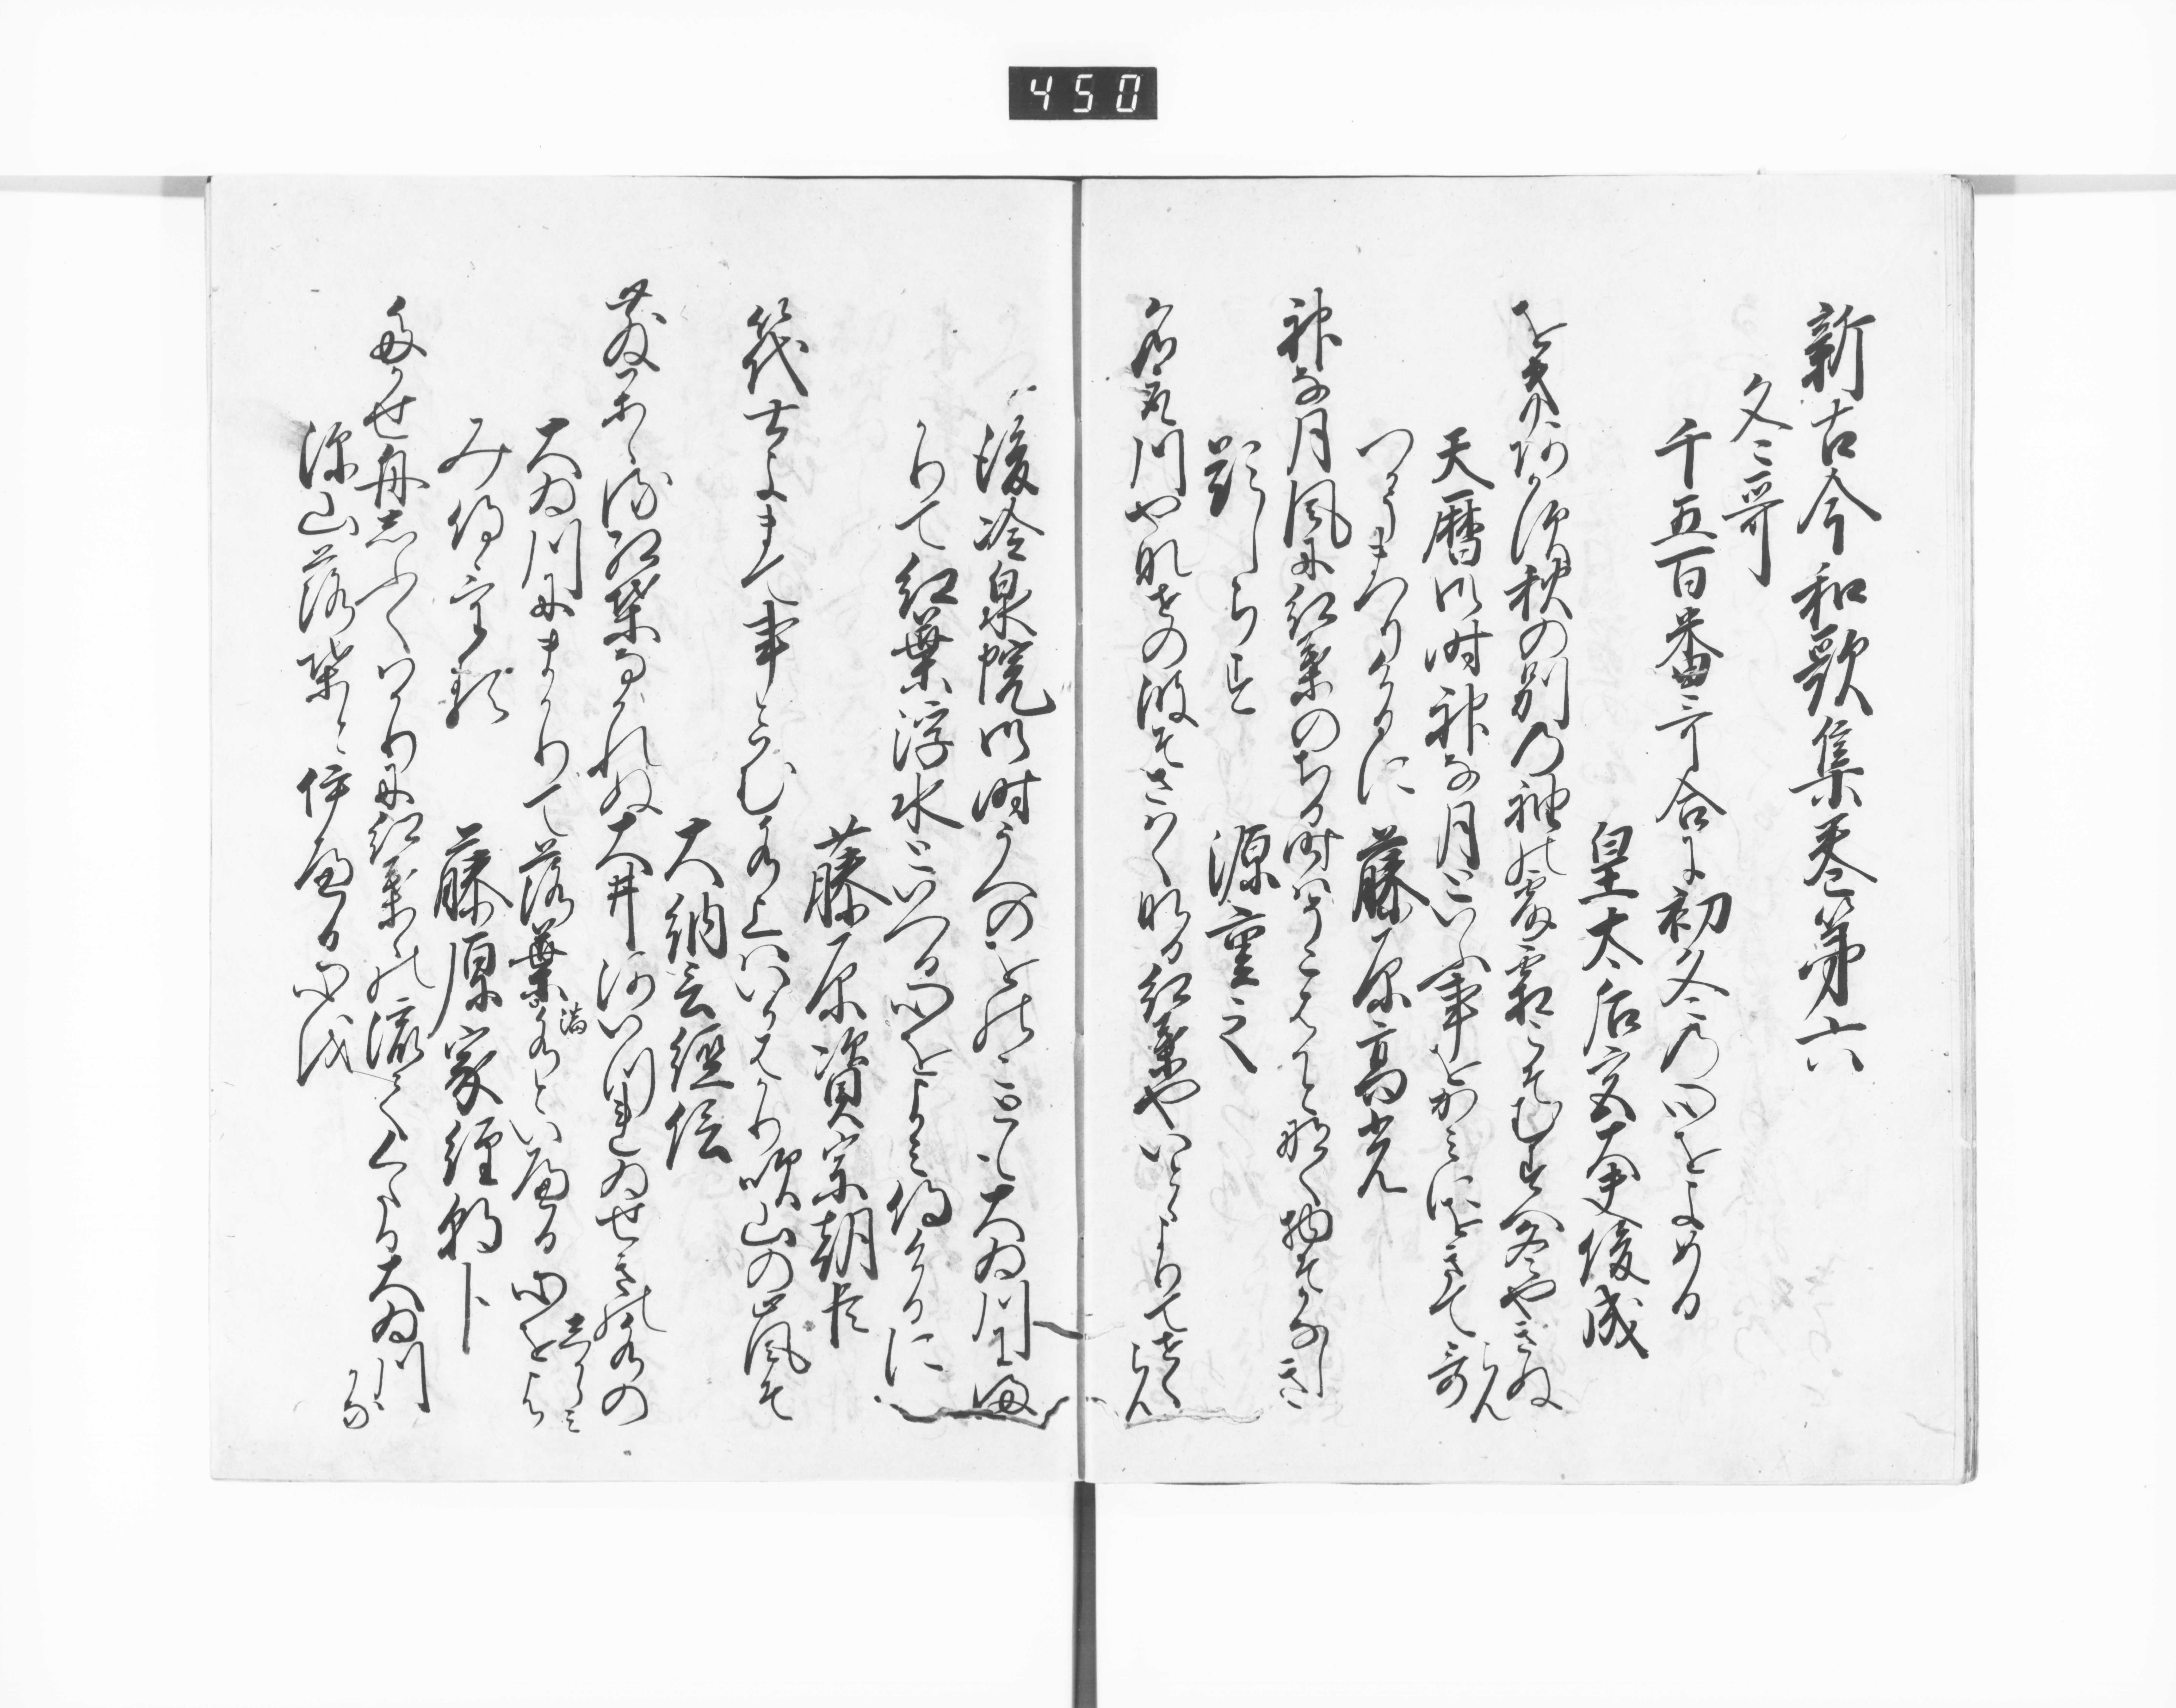 450
新古今和歌集巻第六
冬哥
千五百番哥合に初冬乃心をよめる
皇太后宮大夫俊成
をきあかす秋の別乃袖の露霜こそむすへ冬やきぬ
らん
天暦御時神な月といふ事をかみにをきて哥
つかうまつりけるに 藤原高光
神な月風に紅葉のちる時はそこはかとなく物そかなしき
題しらす 源重之
名取川やなせの波そさはくなる紅葉やいとゝよりてせく
らん
後冷泉院御時うへのをのことも大井川にま
かりて紅葉浮水といへる心をよみ侍けるに
藤原資宗朝臣
筏士よまて事とはむ水上はいかはかり吹山の嵐そ
大納言経信
散かゝる紅葉なかれぬ大井河いつれ井せきの水の
しからみ
大井川にまかりて落葉満水といへる心をよ
み侍ける 藤原家経朝臣
たかせ舟しふくはかりに紅葉の流てくたる大井川
かな
深山落葉といへる心を